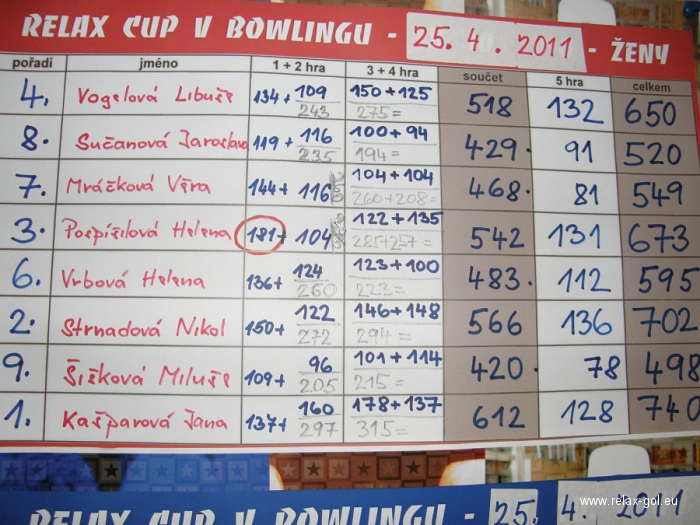 RELAX CUP V BOWLINGU - 25. 4. 2011 - ŽENY
pořadí jméno 1 + 2 hra 3 + 4 hra součet 5 hra celkem
4. Vogelová Libuše 134 + 109 150 + 125 518 132 650
243 275 =
8. Sučanová Jaroslava 119 + 116 100 + 94 429. 91 520
235 194 =
7. Mráčková Věra 144 + 116 104 + 104 468. 81 549
260 + 208 =
3. Pospíšilová Helena 181 + 104 122 + 135 542 131 673
285 + 257 =
6. Vrbová Helena 136 + 124 123 + 100 483. 112 595
260 223 =
2. Strnadová Nikol 150 + 122 146 + 148 566 136 702
272 294 =
9. Šížková Miluše 109 + 96 101 + 114 420. 78 498
205 215 =
1. Kašparová Jana 137 + 160 178 + 137 612 128 740
297 315 =
www.relax-gol.eu
RELAX CUP V BOWLINGU - 25. 4. 2011